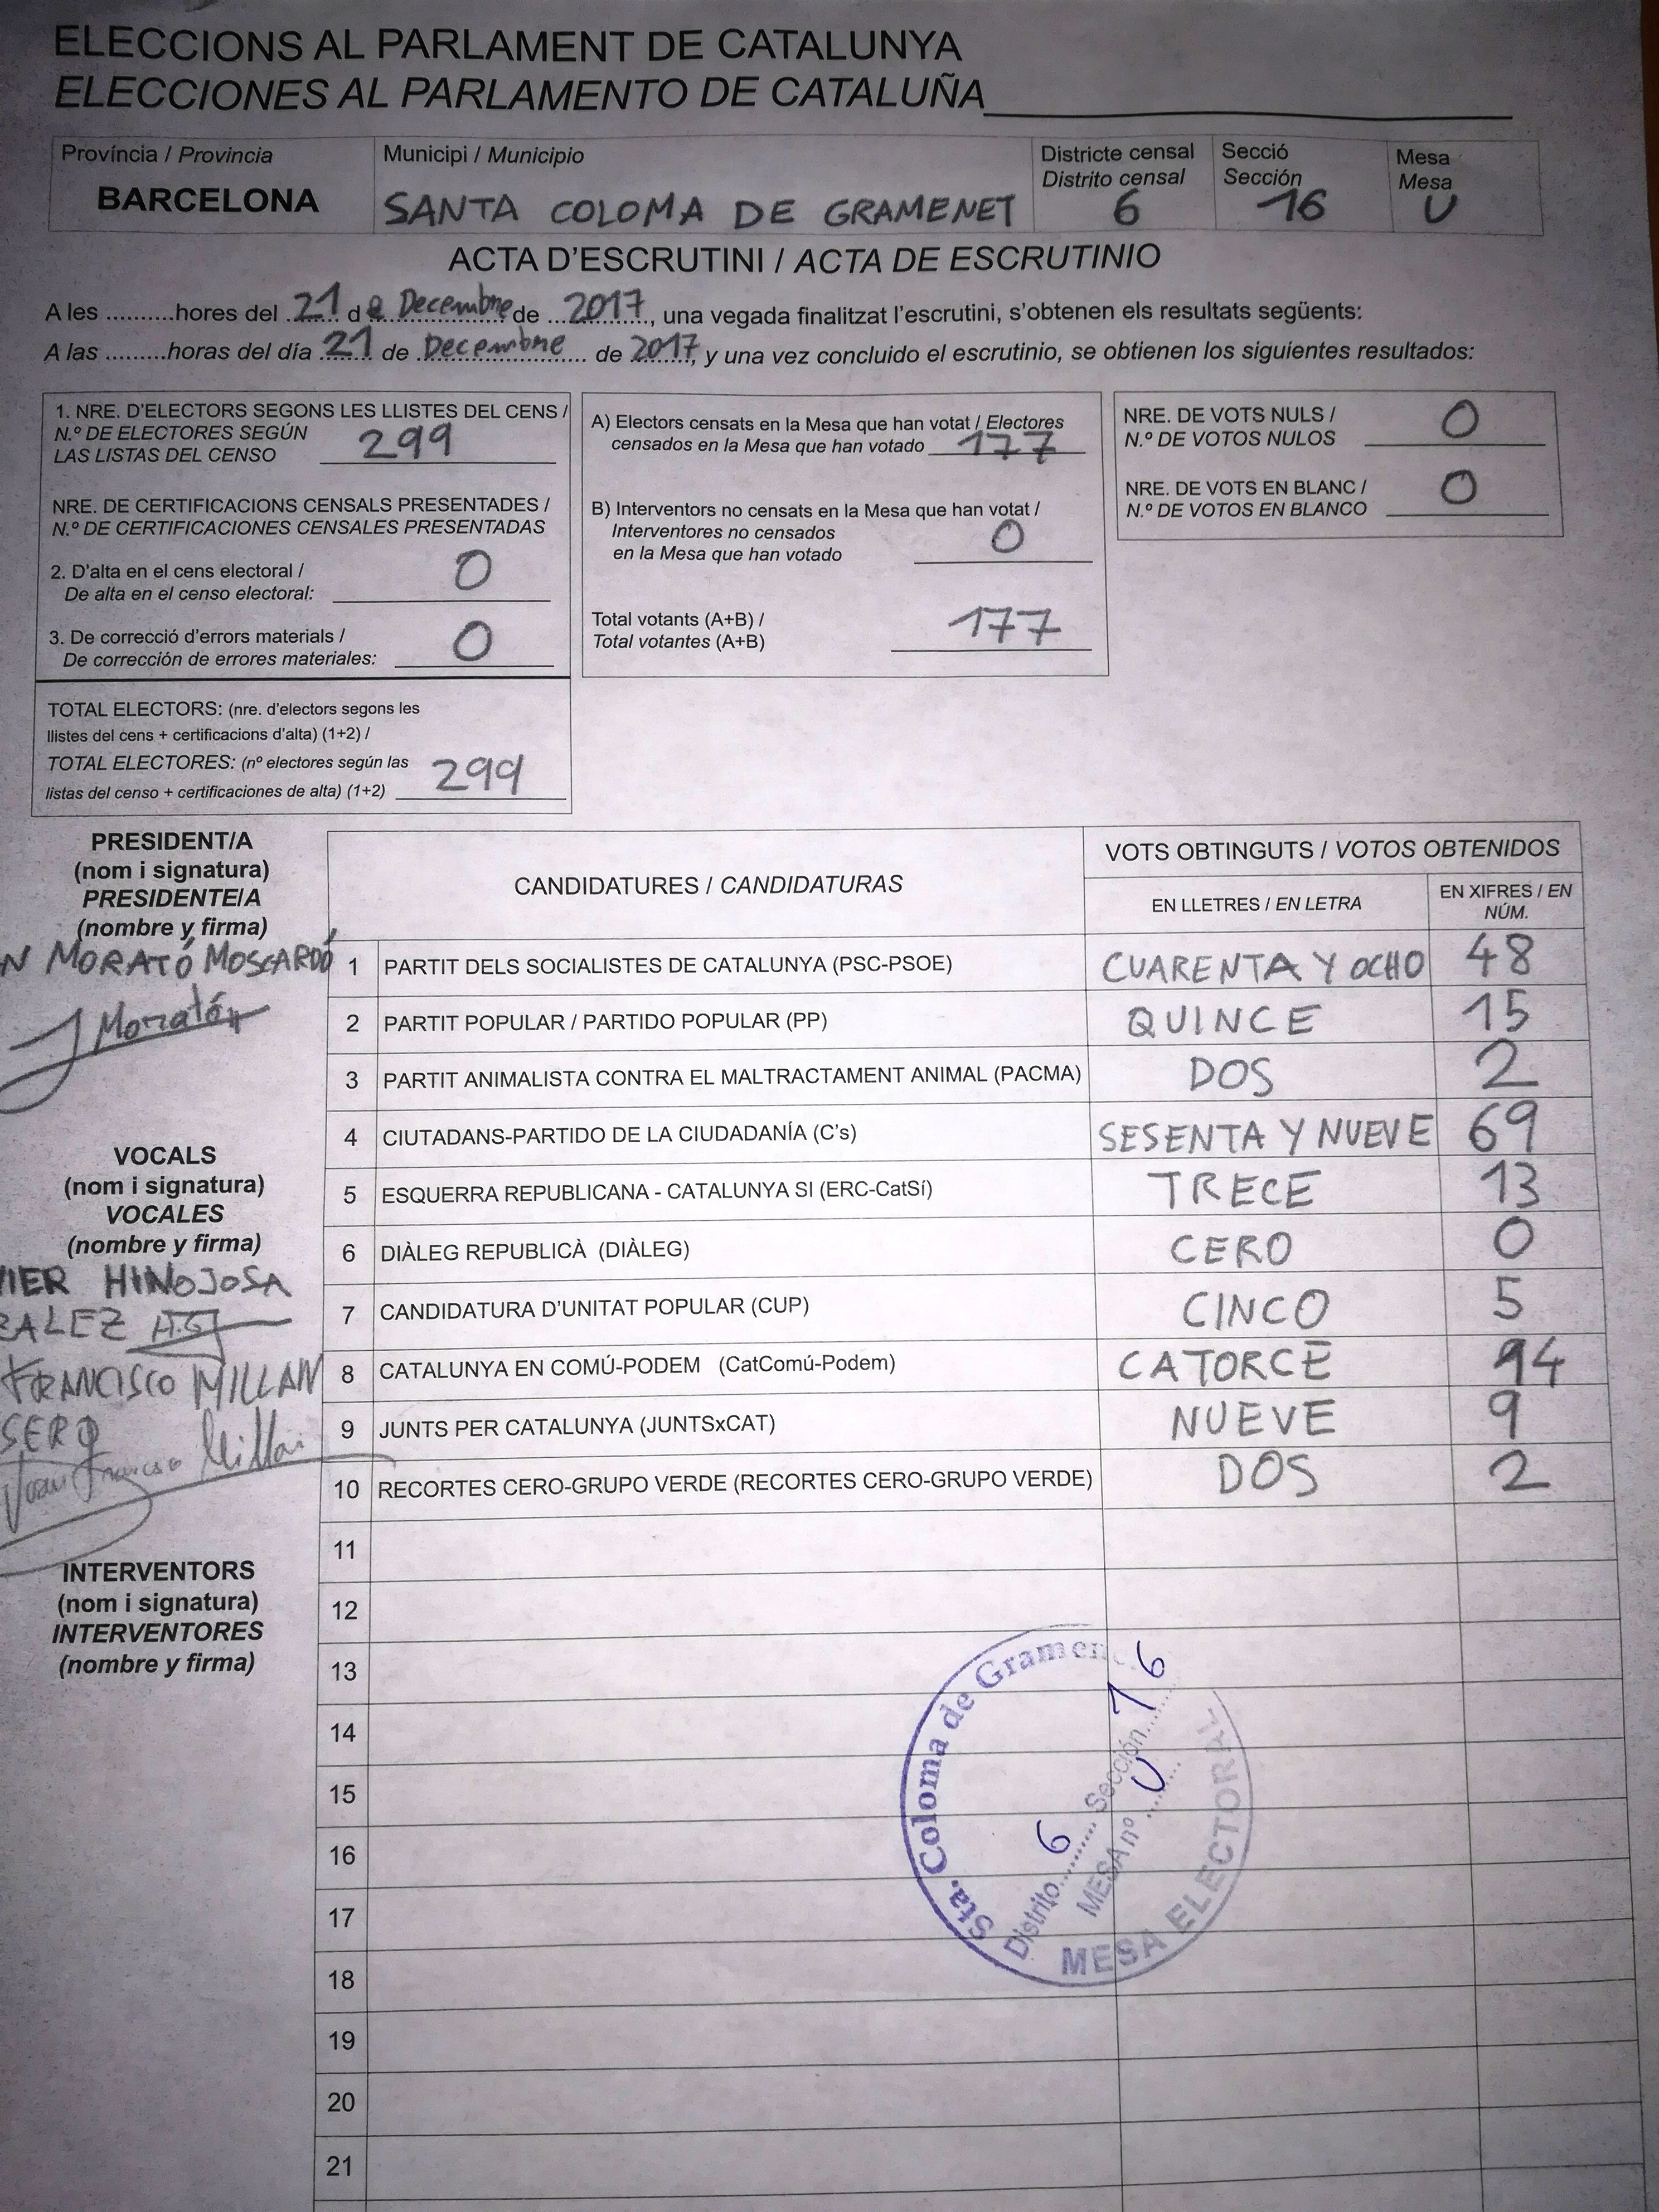 ELECCIONS AL PARLAMENT DE CATALUNYA
ELECCIONES AL PARLAMENTO DE CATALUÑA
Província / Provincia
BARCELONA
Municipi / Municipio
SANTA COLOMA DE GRAMENET
Districte censal
Distrito censal
6
Secció
Sección
16
Mesa
Mesa
U
ACTA D'ESCRUTINI / ACTA DE ESCRUTINIO
A les ..........hores del 21 de Decembre de 2017, una vegada finalitzat l'escrutini, s'obtenen els resultats següents:
A las .........horas del día 21 de Decembre de 2017, y una vez concluido el escrutinio, se obtienen los siguientes resultados:
1. NRE. D'ELECTORS SEGONS LES LLISTES DEL CENS /
N.º DE ELECTORES SEGÚN
LAS LISTAS DEL CENSO 299
NRE. DE CERTIFICACIONS CENSALS PRESENTADES /
N.º DE CERTIFICACIONES CENSALES PRESENTADAS
2. D'alta en el cens electoral /
De alta en el censo electoral: 0
3. De correcció d'errors materials /
De corrección de errores materiales: 0
TOTAL ELECTORS: (nre. d'electors segons les
llistes del cens + certificacions d'alta) (1+2) /
TOTAL ELECTORES: (nº electores según las
listas del censo + certificaciones de alta) (1+2) 299
A) Electors censats en la Mesa que han votat / Electores
censados en la Mesa que han votado 177
B) Interventors no censats en la Mesa que han votat /
Interventores no censados
en la Mesa que han votado 0
Total votants (A+B) /
Total votantes (A+B) 177
NRE. DE VOTS NULS /
N.º DE VOTOS NULOS 0
NRE. DE VOTS EN BLANC /
N.º DE VOTOS EN BLANCO 0
PRESIDENT/A
(nom i signatura)
PRESIDENTE/A
(nombre y firma)
N MORATÓ MOSCARDÓ
J Morató
VOCALS
(nom i signatura)
VOCALES
(nombre y firma)
VIER HINOJOSA
ZALEZ
FRANCISCO MILLAN
SERO
Juan Francisco Millan
INTERVENTORS
(nom i signatura)
INTERVENTORES
(nombre y firma)
CANDIDATURES / CANDIDATURAS
VOTS OBTINGUTS / VOTOS OBTENIDOS
EN LLETRES / EN LETRA
EN XIFRES / EN
NÚM.
1 PARTIT DELS SOCIALISTES DE CATALUNYA (PSC-PSOE) CUARENTA Y OCHO 48
2 PARTIT POPULAR / PARTIDO POPULAR (PP) QUINCE 15
3 PARTIT ANIMALISTA CONTRA EL MALTRACTAMENT ANIMAL (PACMA) DOS 2
4 CIUTADANS-PARTIDO DE LA CIUDADANÍA (C's) SESENTA Y NUEVE 69
5 ESQUERRA REPUBLICANA - CATALUNYA SI (ERC-CatSí) TRECE 13
6 DIÀLEG REPUBLICÀ (DIÀLEG) CERO 0
7 CANDIDATURA D'UNITAT POPULAR (CUP) CINCO 5
8 CATALUNYA EN COMÚ-PODEM (CatComú-Podem) CATORCE 14
9 JUNTS PER CATALUNYA (JUNTSxCAT) NUEVE 9
10 RECORTES CERO-GRUPO VERDE (RECORTES CERO-GRUPO VERDE) DOS 2
11
12
13
14
15
16
17
18
19
20
21
Sta. Coloma de Gramen
Distrito 6 Sección 16
MESA nº U
MESA ELECTORAL